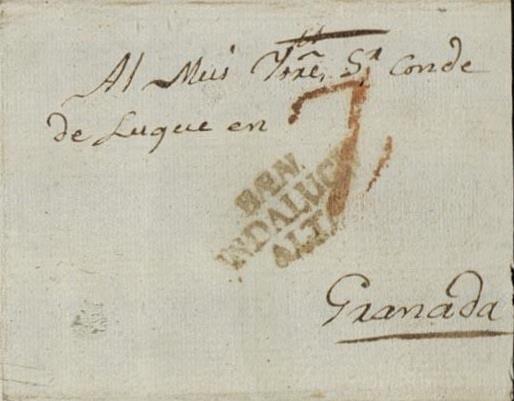 Al Mui Yxrẽ, Sr Conde
de Luque en
7
BAEN
ANDALUCIA
ALTA
Granada